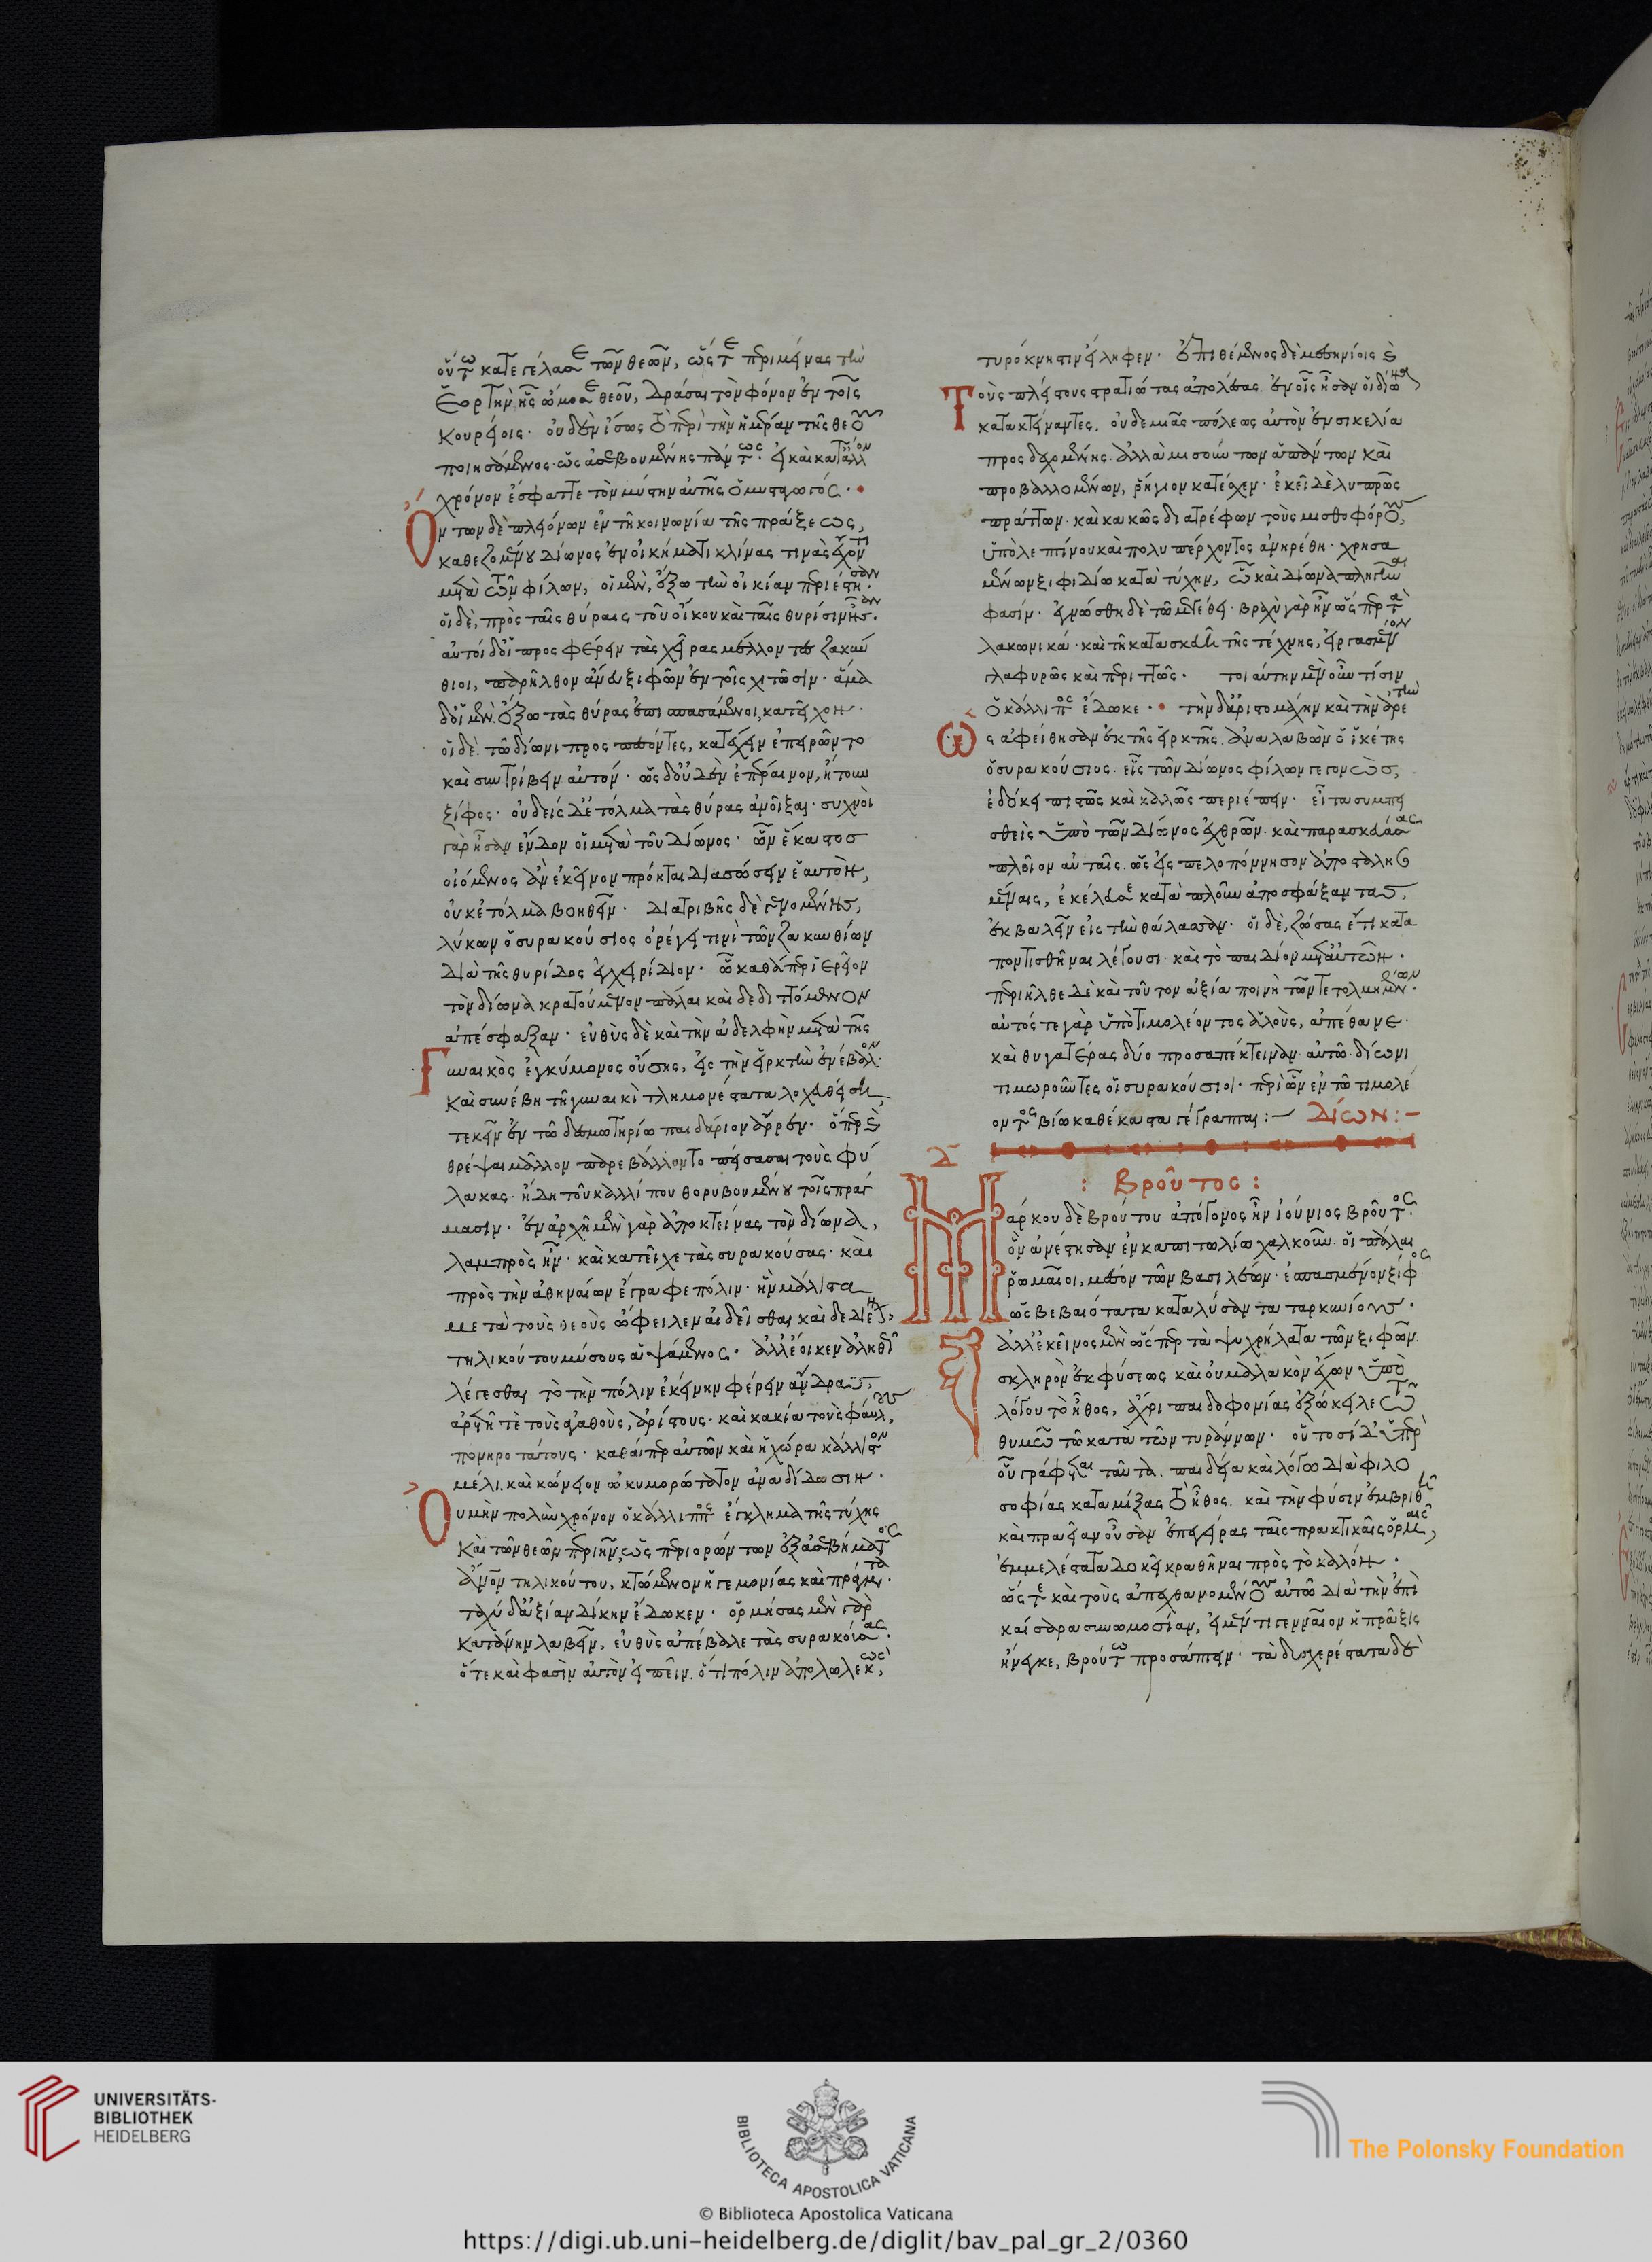 οὕτω κατεγέλασε τῶν θεῶν, ὥστε περιμείνας τὴν
ἑορτὴν ἧς ὤμοσε θεοῦ, δράσαι τὸν φόνον ἐν τοῖς
κουρείοις. οὐδὲν ἴσως τὸ περὶ τὴν ἡμέραν τῆς θεοῦ
ποιησάμενος· ὡς ἀσεβουμένης πάντως. εἰ καὶ κατ' ἄλλον
χρόνον ἔσφαττε τὸν μύστην αὐτῆς ὁ μυσταγωγός.
Ὄντων δὲ πλειόνων ἐν τῇ κοινωνίᾳ τῆς πράξεως,
καθεζομένου Δίωνος ἐν οἰκήματι κλίνας τινὰς ἔχοντι
μετὰ τῶν φίλων, οἱ μὲν, ἔξω τὴν οἰκίαν περιέστησαν.
οἱ δὲ, πρὸς ταῖς θύραις τοῦ οἴκου καὶ ταῖς θυρίσιν ἦσαν.
αὐτοὶ δ' οἱ προσφέρειν τὰς χεῖρας μέλλοντες ζακύν
θιοι, παρῆλθον ἄνευ ξιφῶν ἐν τοῖς χιτῶσιν. ἅμα
δ' οἱ μὲν ἔξω τὰς θύρας ἐπισπασάμενοι, κατεῖχον.
οἱ δὲ τῷ δίωνι προσπεσόντες, κατάγχειν ἐπειρῶντο
καὶ συντρίβειν αὐτόν. ὡς δ' οὐδὲν ἐπέραινον, ᾔτουν
ξίφος. οὐδεὶς δ' ἐτόλμα τὰς θύρας ἀνοῖξαι. συχνοὶ
γὰρ ἦσαν ἔνδον οἱ μετὰ τοῦ Δίωνος. ὧν ἕκαστος
οἰόμενος ἂν ἐκεῖνον πρόηται διασώσειν ἑαυτόν,
οὐκ ἐτόλμα βοηθεῖν. διατριβῆς δὲ γενομένης,
λύκων ὁ συρακούσιος ὀρέγει τινὶ τῶν ζακυνθίων
διὰ τῆς θυρίδος ἐγχειρίδιον. ᾧ καθάπερ ἱερεῖον
τὸν δίωνα κρατούμενον πάλαι καὶ δεδιττόμενον
ἀπέσφαξαν. εὐθὺς δὲ καὶ τὴν ἀδελφὴν μετὰ τῆς
Γυναικὸς ἐγκύμονος οὔσης, εἰς τὴν εἱρκτὴν ἐνέβαλον.
Καὶ συνέβη τῇ γυναικὶ τλημονέστατα λοχευθείσῃ,
τεκεῖν ἐν τῷ δεσμωτηρίῳ παιδάριον ἄρρεν. ὅπερ καὶ
θρέψαι μᾶλλον παρεβάλλοντο πείσασαι τοὺς φύ
λακας. ἤδη τοῦ καλλίππου θορυβουμένου τοῖς πράγ
μασιν. ἐν ἀρχῇ μὲν γὰρ ἀποκτείνας τὸν δίωνα,
λαμπρὸς ἦν. καὶ κατεῖχε τὰς συρακούσας. καὶ
πρὸς τὴν ἀθηναίων ἔγραφε πόλιν. ἣν μάλιστα
μετὰ τοὺς θεοὺς ὤφειλεν αἰδεῖσθαι καὶ δεδιέναι,
τηλικούτου μύσους ἁψάμενος. ἀλλ' ἔοικεν ἀληθῶς
λέγεσθαι τὸ τὴν πόλιν ἐκείνην φέρειν ἄνδρας,
ἀρετῇ τε τοὺς ἀγαθοὺς, ἀρίστους. καὶ κακίᾳ τοὺς φαύλους,
πονηροτάτους. καθάπερ αὐτῶν καὶ ἡ χώρα κάλλιστον
μέλι. καὶ κώνειον ὠκυμορώτατον ἀναδίδωσιν.
Οὐ μὴν πολὺν χρόνον ὁ κάλλιππος ἔγκλημα τῆς τύχης
Καὶ τῶν θεῶν περιῆν, ὡς περιορώντων ἐξ ἀσεβήματος
ἄνδρα τηλικούτου, κτώμενον ἡγεμονίας καὶ πράγματα.
ταχὺ δ' ἀξίαν δίκην ἔδωκεν. ὁρμήσας μὲν γὰρ
Κατάνην λαβεῖν, εὐθὺς ἀπέβαλε τὰς συρακούσας.
ὅτε καί φασιν αὐτὸν εἰπεῖν. ὅτι πόλιν ἀπολωλεκὼς,
τυρόκνηστιν εἴληφεν. ἐπιθέμενος δὲ μεσσηνίοις καὶ
Τοὺς πλείστους στρατιώτας ἀπολέσας. ἐν οἷς ἦσαν οἱ δίωνα
κατακτείναντες. οὐδεμιᾶς πόλεως αὐτὸν ἐν σικελίᾳ
προσδεχομένης. ἀλλὰ μισούντων ἁπάντων καὶ
προβαλλομένων, ῥήγιον κατέσχεν. ἐκεῖ δὲ λυπρῶς
πράττων. καὶ κακῶς διατρέφων τοὺς μισθοφόρους,
ὑπὸ λεπτίνου καὶ πολυπέρχοντος ἀνῃρέθη. χρησα
μένων ξιφιδίῳ κατὰ τύχην, ᾧ καὶ Δίωνα πληγῆναι
φασίν. ἐγνώσθη δὲ τῷ μεγέθει. βραχὺ γὰρ ἦν ὥσπερ τὰ
λακωνικά. καὶ τῇ κατασκευῇ τῆς τέχνης, εἰργασμένον
γλαφυρῶς καὶ περιττῶς. τοιαύτην μὲν οὖν τίσιν
ὁ κάλλιππος ἔδωκε. τὴν δ' ἀριστομάχην καὶ τὴν ἀρετὴν
Ὡς ἀφείθησαν ἐκ τῆς εἱρκτῆς. ἀναλαβὼν ὁ ἱκέτης
ὁ συρακούσιος. εἷς τῶν Δίωνος φίλων γεγονώς,
ἐδόκει πιστῶς καὶ καλῶς περιέπειν. εἶτα συμπει
σθεὶς ὑπὸ τῶν Δίωνος ἐχθρῶν. καὶ παρασκευάσας
πλοῖον αὐταῖς. ὡς εἰς πελοπόννησον ἀποσταλησο
μέναις, ἐκέλευσε κατὰ πλοῦν ἀποσφάξαντας,
ἐκβαλεῖν εἰς τὴν θάλασσαν. οἱ δὲ, ζώσας ἔτι κατα
ποντισθῆναι λέγουσι. καὶ τὸ παιδίον μετ' αὐτῶν.
περιῆλθε δὲ καὶ τοῦτον ἀξία ποινὴ τῶν τετολμημένων.
αὐτός τε γὰρ ὑπὸ τιμολέοντος ἁλοὺς, ἀπέθανε.
καὶ θυγατέρας δύο προσαπέκτειναν αὐτῷ δίωνι
τιμωροῦντες οἱ συρακούσιοι. περὶ ὧν ἐν τῷ τιμολέ
οντος βίῳ καθέκαστα γέγραπται:— Δίων:—
: Βροῦτος :
Μάρκου δὲ βρούτου ἀπόγονος ἦν ἰούνιος βροῦτος.
ὃν ἀνέστησαν ἐν καπιτωλίῳ χαλκοῦν. οἱ πάλαι
ῥωμαῖοι, μέσον τῶν βασιλέων. ἐσπασμένον ξίφος.
ὡς βεβαιότατα καταλύσαντα ταρκυνίους.
ἀλλ' ἐκεῖνος μὲν ὥσπερ τὰ ψυχρήλατα τῶν ξιφῶν.
σκληρὸν ἐκ φύσεως καὶ οὐ μαλακὸν ἔχων ὑπὸ
λόγου τὸ ἦθος, ἄχρι παιδοφονίας ἐξώκειλε τῷ
θυμῷ τῷ κατὰ τῶν τυράννων. οὑτοσὶ δ' ὑπὲρ
οὗ γράφεται ταῦτα. παιδείᾳ καὶ λόγῳ διὰ φιλο
σοφίας καταμίξας τὸ ἦθος. καὶ τὴν φύσιν ἐμβριθῆ
καὶ πραεῖαν οὖσαν ἐπεγείρας ταῖς πρακτικαῖς ὁρμαῖς,
ἐμμελέστατα δοκεῖ κραθῆναι πρὸς τὸ καλόν.
ὥστε καὶ τοὺς ἀπεχθανομένους αὐτῷ διὰ τὴν ἐπὶ
καίσαρα συνωμοσίαν, εἰ μέν τι γενναῖον ἡ πρᾶξις
ἤνεγκε, βρούτῳ προσάπτειν. τὰ δυσχερέστατα δὲ
UNIVERSITÄTS-
BIBLIOTHEK
HEIDELBERG
BIBLIOTECA APOSTOLICA VATICANA
The Polonsky Foundation
© Biblioteca Apostolica Vaticana
https://digi.ub.uni-heidelberg.de/diglit/bav_pal_gr_2/0360